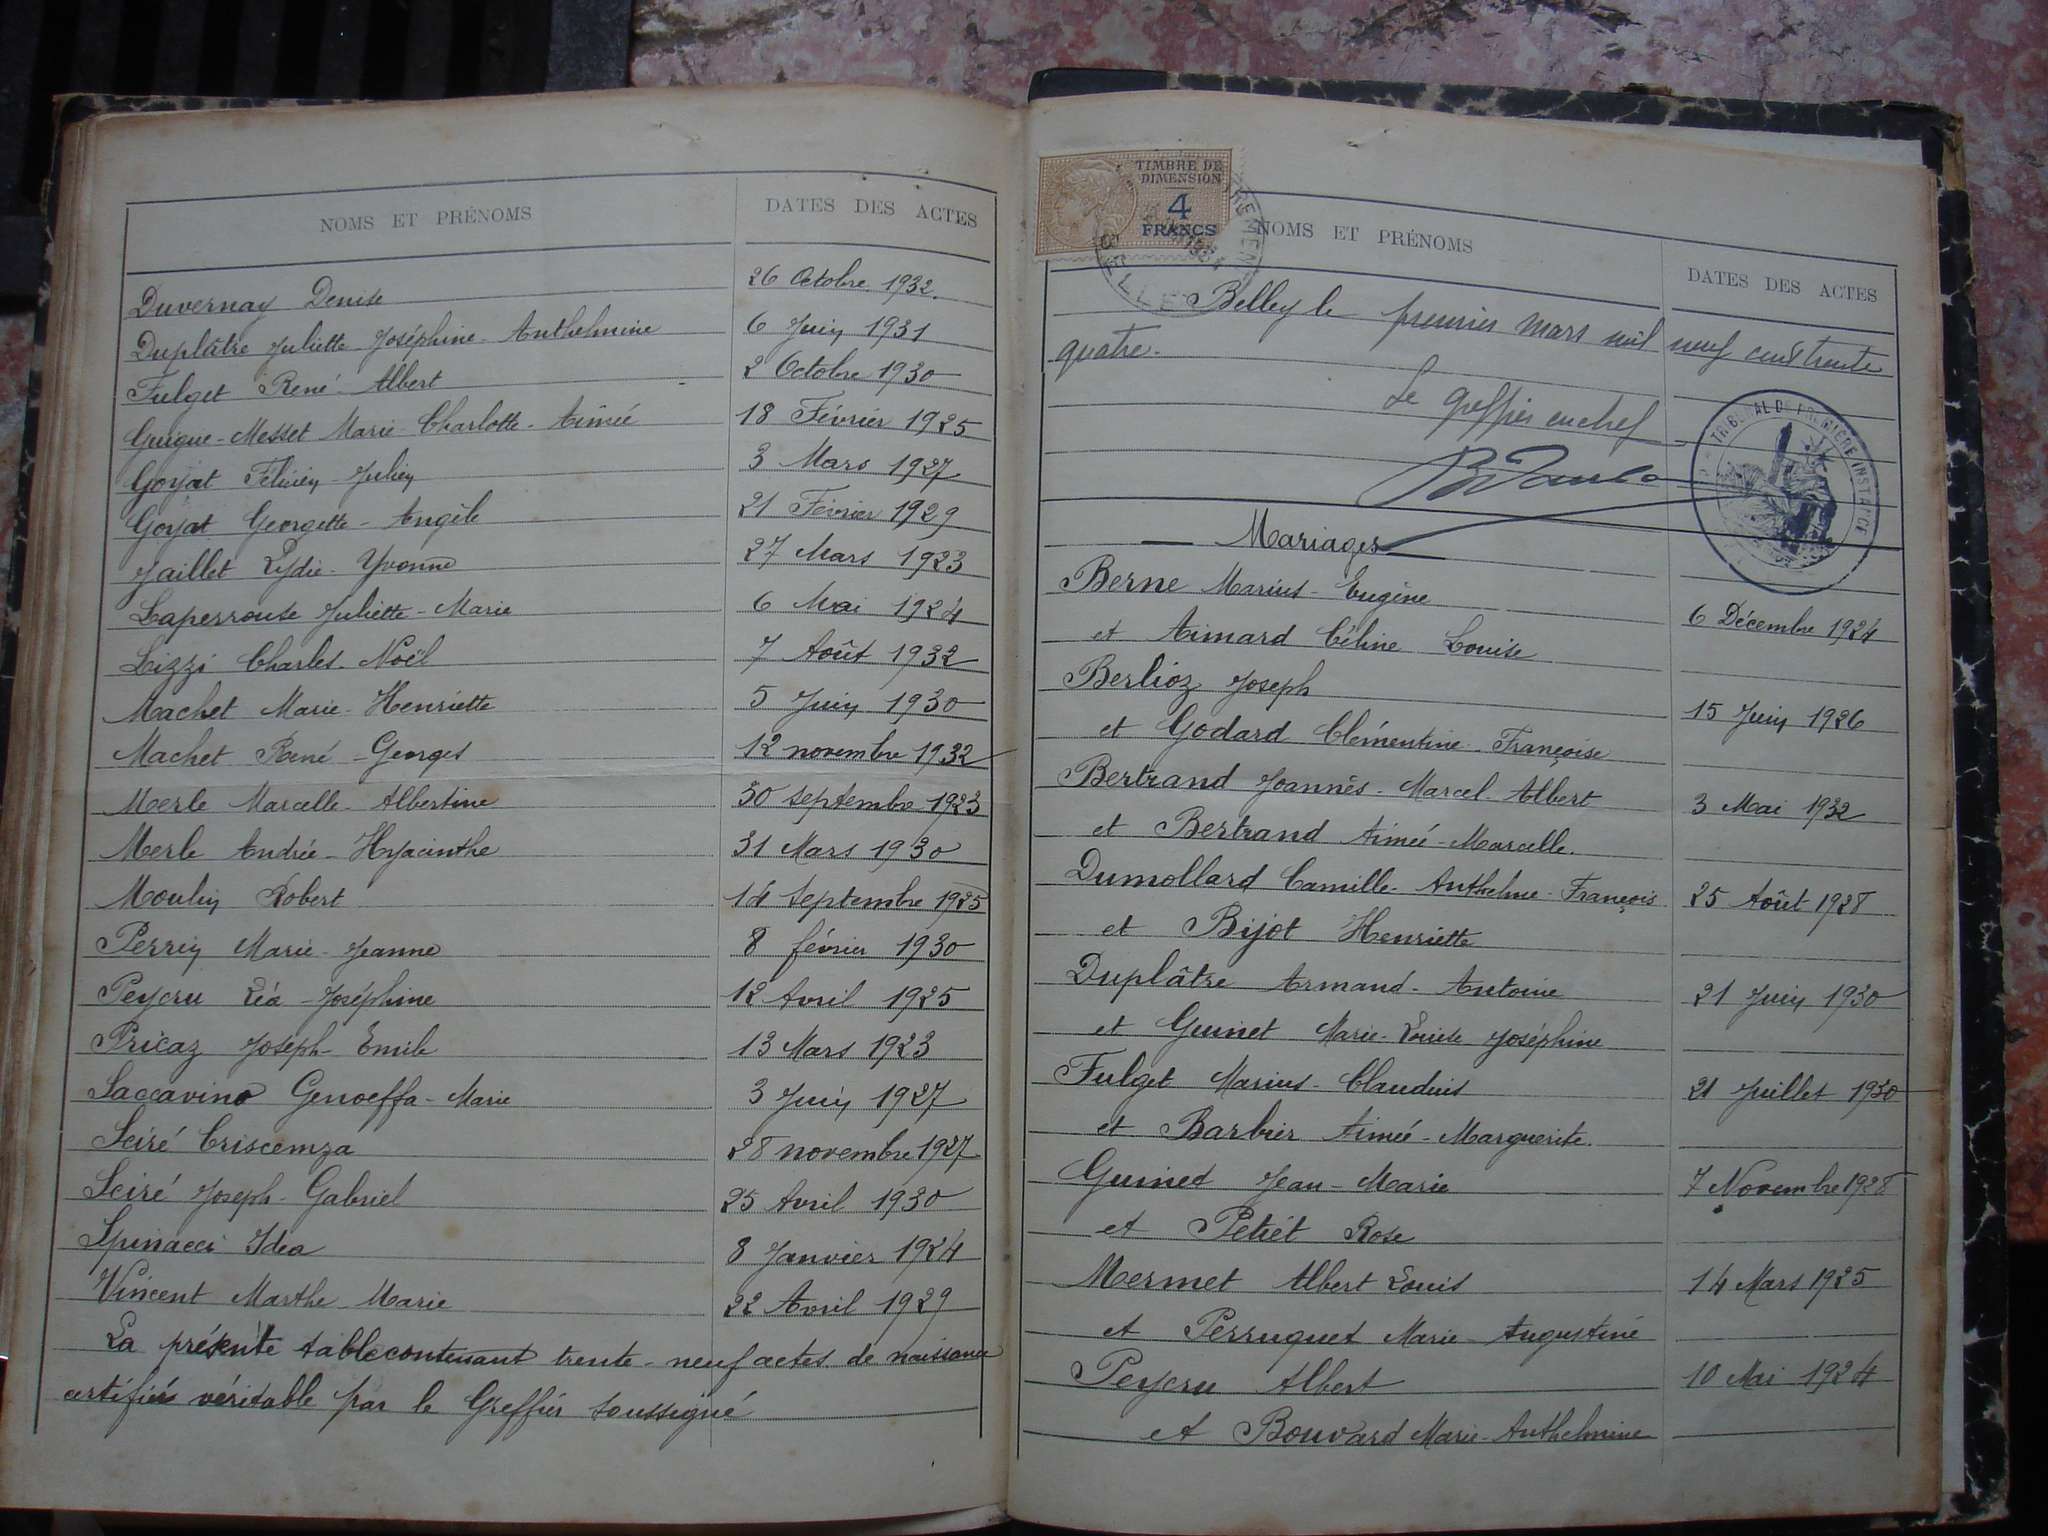 NOMS ET PRÉNOMS DATES DES ACTES
Duvernay Denise 26 Octobre 1932
Duplâtre Juliette Joséphine - Anthelmine 6 Juin 1931
Fulget René - Albert 2 Octobre 1930
Guigue-Messet Marie Charlotte - Aimée 18 Février 1925
Goyat Félicien - Julien 3 Mars 1927
Goyat Georgette - Angèle 21 Février 1929
Jaillet Lydie - Yvonne 27 Mars 1923
Laperrouse Juliette - Marie 6 Mai 1924
Lizzi Charles - Noël 7 Août 1932
Machet Marie - Henriette 5 Juin 1930
Machet René - Georges 12 novembre 1932
Merle Marcelle - Albertine 30 septembre 1923
Merle Andrée - Hyacinthe 31 Mars 1930
Moulin Robert 14 septembre 1925
Perrin Marie - Jeanne 8 février 1930
Peycru Léa - Joséphine 12 Avril 1925
Pricaz Joseph - Emile 13 Mars 1923
Saccavino Genoeffa - Marie 3 Juin 1927
Sciré Criscemza 28 novembre 1927
Sciré Joseph - Gabriel 25 Avril 1930
Spinacci Idea 8 Janvier 1924
Vincent Marthe - Marie 22 Avril 1929
La présente table contenant trente-neuf actes de naissance
certifiés véritable par le Greffier soussigné
TIMBRE DE
DIMENSION
4
FRANCS
NOMS ET PRÉNOMS DATES DES ACTES
Belley le premier mars mil neuf cent trente
quatre.
Le greffier en chef
TRIBUNAL DE PREMIÈRE INSTANCE
Mariages
Berne Marius - Eugène 6 Décembre 1924
et Aimard Céline Louise
Berlioz Joseph 15 Juin 1926
et Godard Clémentine - Françoise
Bertrand Joannès - Marcel - Albert 3 Mai 1932
et Bertrand Aimée - Marcelle.
Dumollard Camille - Anthelme - François 25 Août 1928
et Bijot Henriette
Duplâtre Armand - Antoine 21 Juin 1930
et Guinet Marie - Louise Joséphine
Fulget Marius - Claudius 21 Juillet 1930
et Barbier Aimée - Marguerite.
Guinet Jean - Marie 7 Novembre 1928
et Petiet Rose
Mermet Albert Louis 14 Mars 1925
et Perruquet Marie - Augustine
Peycru Albert 10 Mai 1924
et Bouvard Marie - Anthelmine